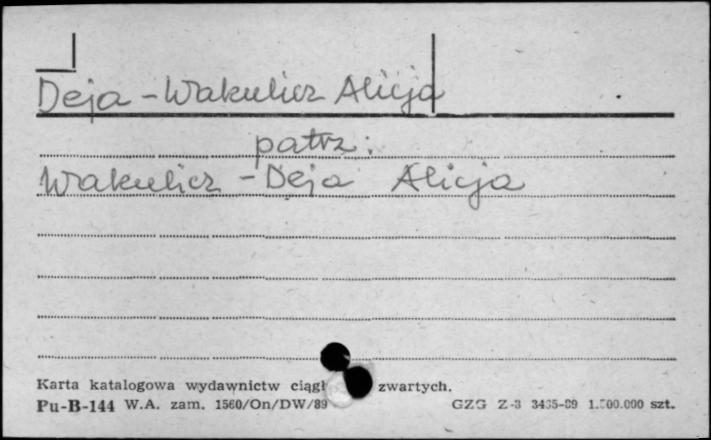 Deja-Wakulicz Alicja
patrz:
Wakulicz-Deja Alicja
Karta katalogowa wydawnictw zwartych.
Pu-B-144 W.A. zam. 1560/On/DW/89 GZG Z-3 1.500.000 szt.